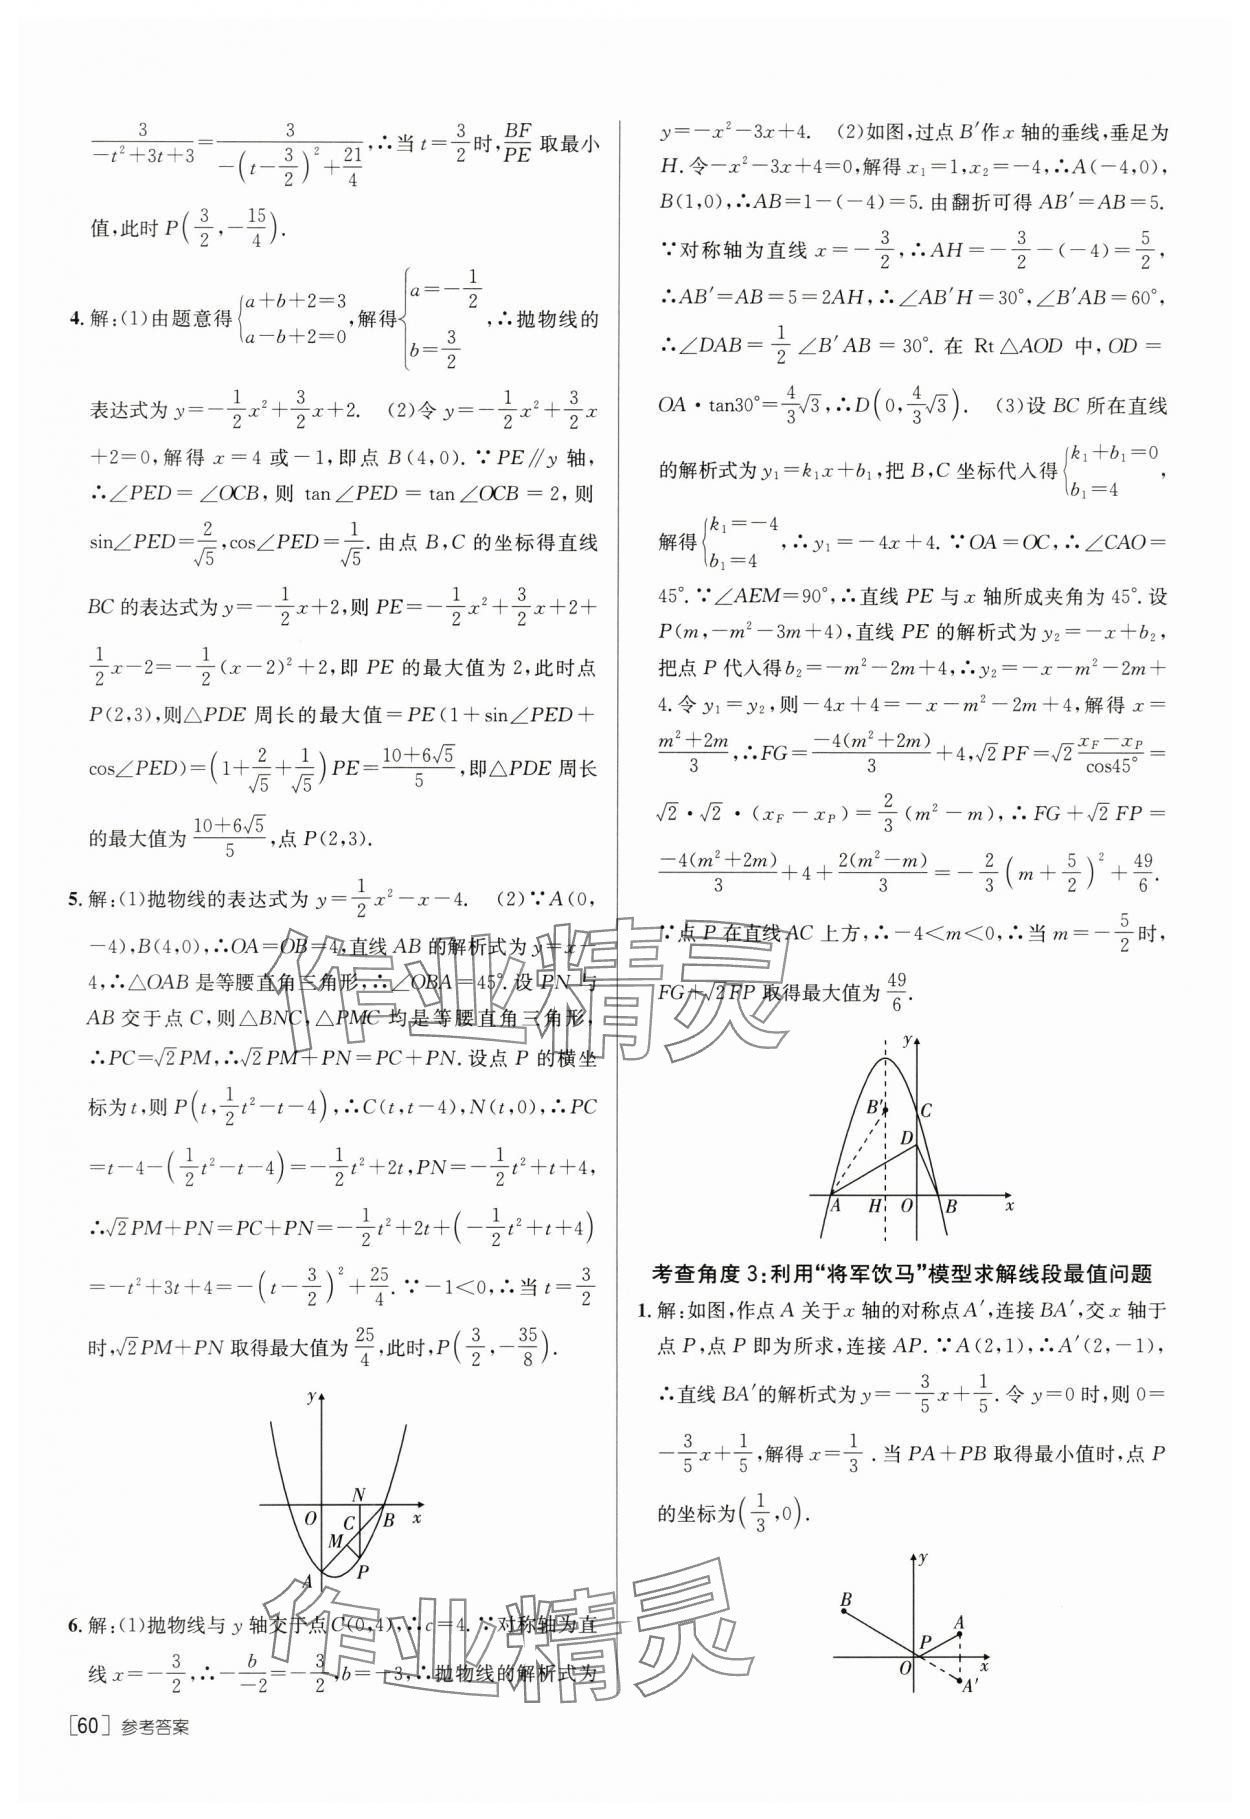 3/(-t²+3t+3)=3/(-(t-3/2)²+21/4),∴当t=3/2时,BF/PE取最小
值,此时P(3/2,-15/4).
4.解:(1)由题意得{a+b+2=3 a-b+2=0,解得{a=-1/2 b=3/2,∴抛物线的
表达式为y=-1/2x²+3/2x+2. (2)令y=-1/2x²+3/2x
+2=0,解得x=4或-1,即点B(4,0).∵PE∥y轴,
∴∠PED=∠OCB,则tan∠PED=tan∠OCB=2,则
sin∠PED=2/√5,cos∠PED=1/√5.由点B,C的坐标得直线
BC的表达式为y=-1/2x+2,则PE=-1/2x²+3/2x+2+
1/2x-2=-1/2(x-2)²+2,即PE的最大值为2,此时点
P(2,3),则△PDE周长的最大值=PE(1+sin∠PED+
cos∠PED)=(1+2/√5+1/√5)PE=(10+6√5)/5,即△PDE周长
的最大值为(10+6√5)/5,点P(2,3).
5.解:(1)抛物线的表达式为y=1/2x²-x-4. (2)∵A(0,
-4),B(4,0),∴OA=OB=4,直线AB的解析式为y=x-
4,∴△OAB是等腰直角三角形,∴∠OBA=45°.设PN与
AB交于点C,则△BNC,△PMC均是等腰直角三角形,
∴PC=√2PM,∴√2PM+PN=PC+PN.设点P的横坐
标为t,则P(t,1/2t²-t-4),∴C(t,t-4),N(t,0),∴PC
=t-4-(1/2t²-t-4)=-1/2t²+2t,PN=-1/2t²+t+4,
∴√2PM+PN=PC+PN=-1/2t²+2t+(-1/2t²+t+4)
=-t²+3t+4=-(t-3/2)²+25/4.∵-1<0,∴当t=3/2
时,√2PM+PN取得最大值为25/4,此时,P(3/2,-35/8).
y
N
O
C
B
x
M
A
P
6.解:(1)抛物线与y轴交于点C(0,4),∴c=4.∵对称轴为直
线x=-3/2,∴-b/-2=-3/2,b=-3,∴抛物线的解析式为
[60]参考答案
y=-x²-3x+4. (2)如图,过点B′作x轴的垂线,垂足为
H.令-x²-3x+4=0,解得x₁=1,x₂=-4,∴A(-4,0),
B(1,0),∴AB=1-(-4)=5.由翻折可得AB′=AB=5.
∵对称轴为直线x=-3/2,∴AH=-3/2-(-4)=5/2,
∴AB′=AB=5=2AH,∴∠AB′H=30°,∠B′AB=60°,
∴∠DAB=1/2∠B′AB=30°.在Rt△AOD中,OD=
OA·tan30°=4/3√3,∴D(0,4/3√3). (3)设BC所在直线
的解析式为y₁=k₁x+b₁,把B,C坐标代入得{k₁+b₁=0 b₁=4,
解得{k₁=-4 b₁=4,∴y₁=-4x+4.∵OA=OC,∴∠CAO=
45°.∵∠AEM=90°,∴直线PE与x轴所成夹角为45°.设
P(m,-m²-3m+4),直线PE的解析式为y₂=-x+b₂,
把点P代入得b₂=-m²-2m+4,∴y₂=-x-m²-2m+
4.令y₁=y₂,则-4x+4=-x-m²-2m+4,解得x=
(m²+2m)/3,∴FG=-4(m²+2m)/3+4,√2PF=√2(x_F-x_P)/cos45°=
√2·√2·(x_F-x_P)=2/3(m²-m),∴FG+√2FP=
-4(m²+2m)/3+4+2(m²-m)/3=-2/3(m+5/2)²+49/6.
∵点P在直线AC上方,∴-4<m<0,∴当m=-5/2时,
FG+√2FP取得最大值为49/6.
y
B′
C
D
A
H
O
B
x
考查角度3:利用“将军饮马”模型求解线段最值问题
1.解:如图,作点A关于x轴的对称点A′,连接BA′,交x轴于
点P,点P即为所求,连接AP.∵A(2,1),∴A′(2,-1),
∴直线BA′的解析式为y=-3/5x+1/5.令y=0时,则0=
-3/5x+1/5,解得x=1/3.当PA+PB取得最小值时,点P
的坐标为(1/3,0).
y
B
A
P
O
x
A′
作业精灵
作业精灵